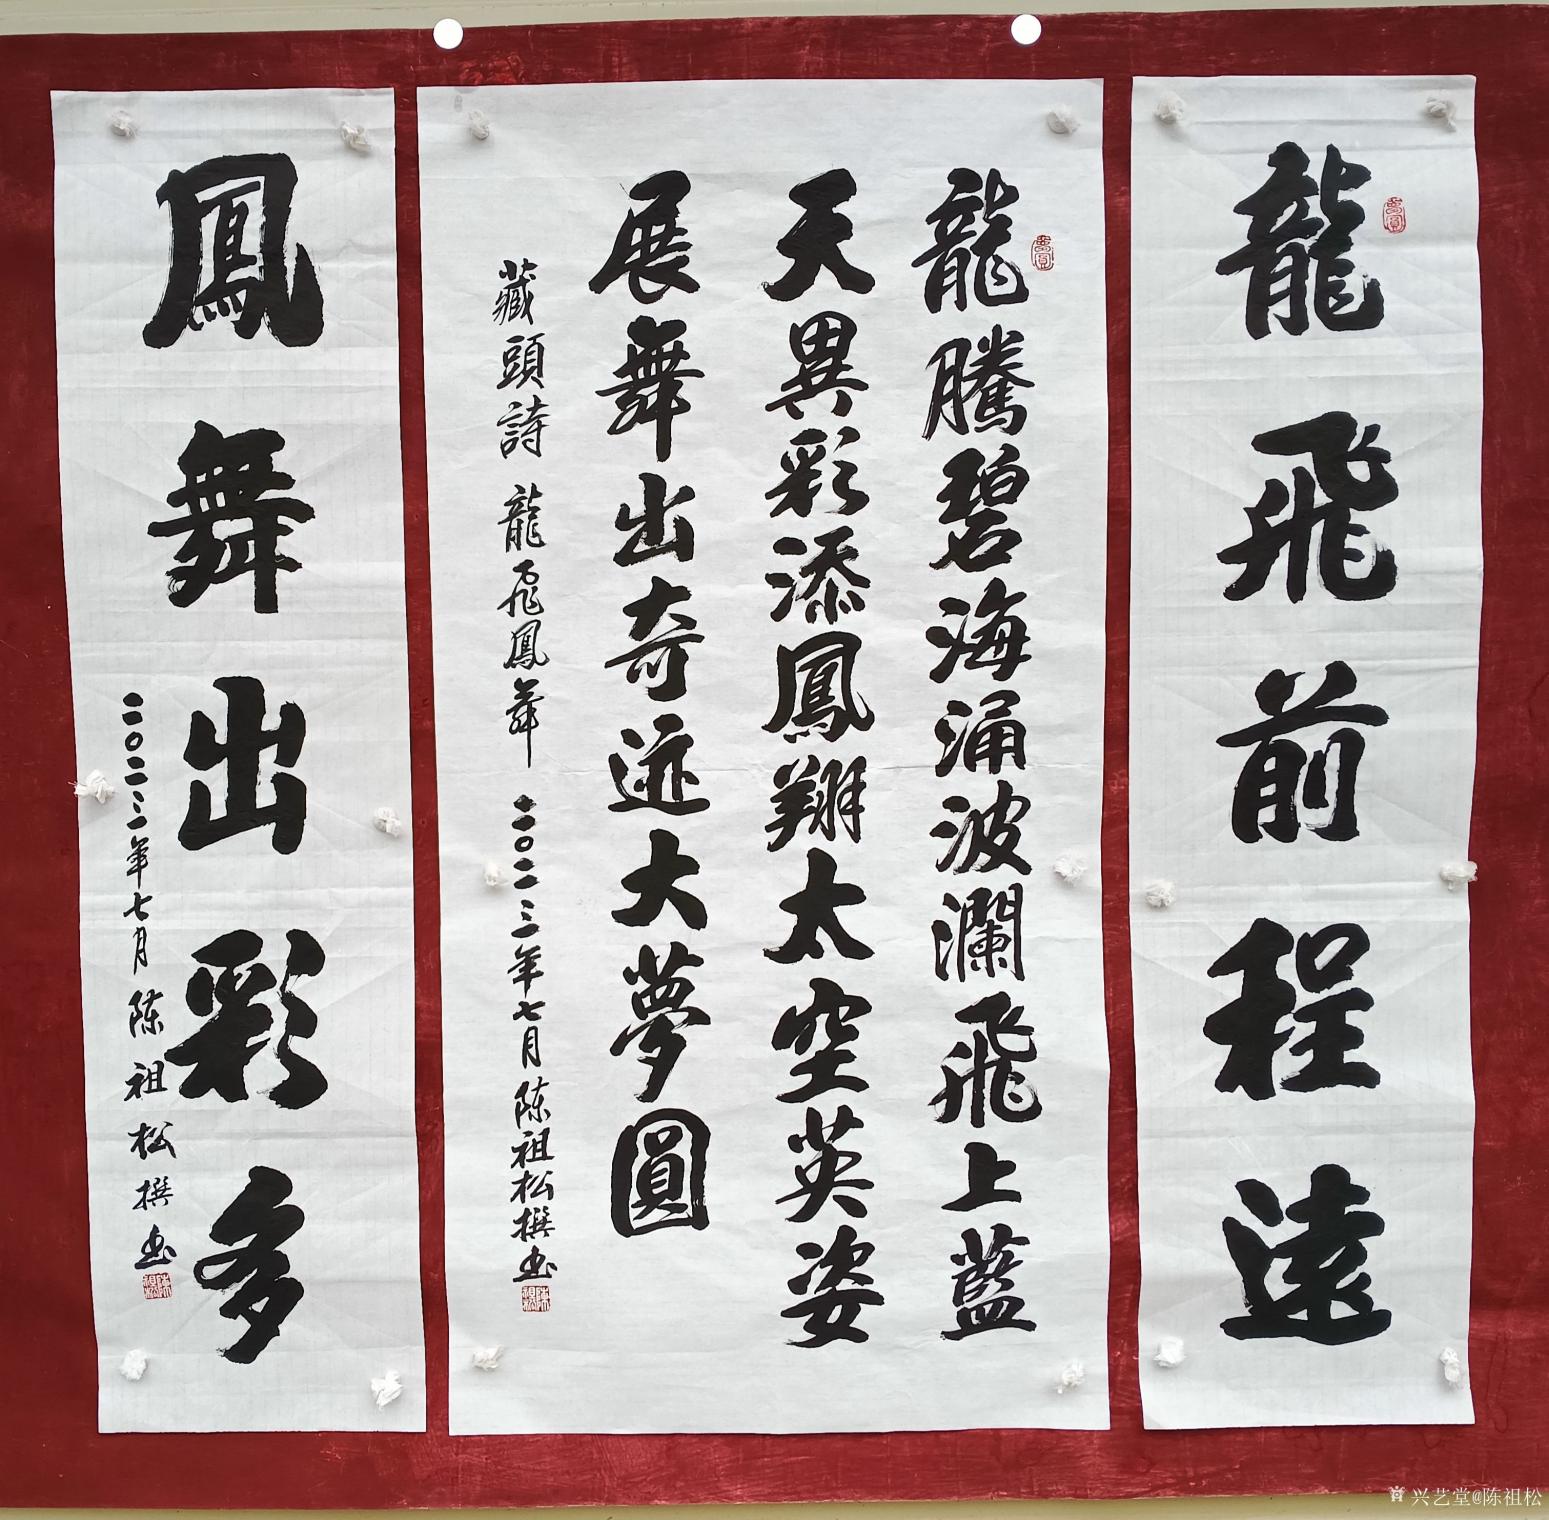 龍飛前程遠
龍騰碧海涌波瀾飛上藍
天異彩添鳳翔太空英姿
展舞出奇迹大夢圓
藏頭詩 龍飛鳳舞 二〇二三年七月 陈祖松撰书
鳳舞出彩多
二〇二三年七月 陈祖松撰书
兴艺堂@陈祖松